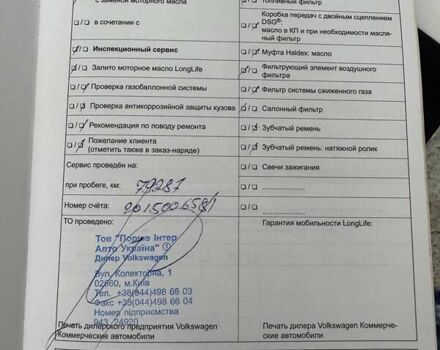 с заменой моторного масла
Топливный фильтр
в сочетании с
Коробка передач с двойным сцеплением
DSG®:
масло в КП и при необходимости масля-
ный фильтр
Инспекционный сервис
Муфта Haldex: масло
Залито моторное масло LongLife
Фильтрующий элемент воздушного
фильтра
Проверка газобаллонной системы
Фильтр системы сжиженного газа
Проверка антикоррозийной защиты кузова
Салонный фильтр
Рекомендация по поводу ремонта
Зубчатый ремень
Пожелание клиента
(отметить также в заказ-наряде)
Зубчатый ремень: натяжной ролик
Сервис проведён на:
Свечи зажигания
при пробеге, км: 79287
Номер счёта:
ТО проведено:
Гарантия мобильности LongLife:
Тов "Порше Інтер
Авто Україна" ①
Дилер Volkswagen
Вул. Колекторна, 1
02660, м.Київ
Тел. +38(044)498 66 03
Факс +38(044)498 66 04
Номер підприємства
943 24920
Печать дилерского предприятия Volkswagen
Коммерческие автомобили
Печать дилера Volkswagen Коммерче-
ские автомобили